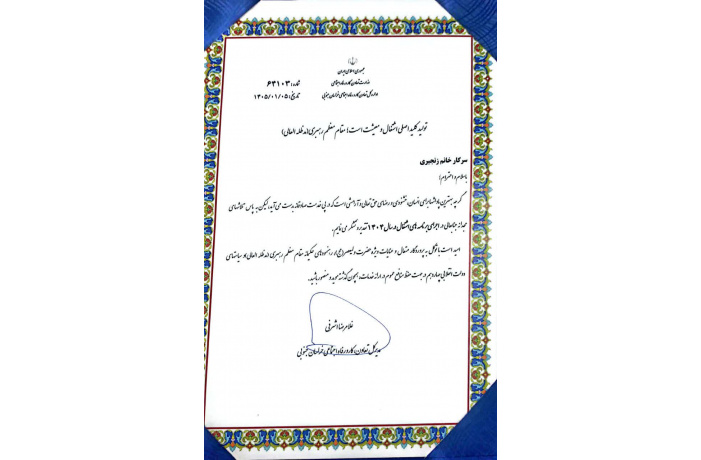 جمهوری اسلامی ایران
وزارت تعاون، کار و رفاه اجتماعی
اداره کل تعاون، کار و رفاه اجتماعی خراسان جنوبی
شماره: ۶۳۱۰۳
تاریخ: ۱۴۰۵/۰۱/۰۵
تولید کلید اصلی اشتغال و معیشت است؛ مقام معظم رهبری (مدظله العالی)
سرکار خانم زنجیری
با سلام و احترام؛
گرچه بهترین پاداشها برای انسان، خشنودی و رضای حق تعالی و آرامشی است که در پی خدمت صادقانه بدست می آید، لیکن به پاس تلاشهای
مجدانه جنابعالی در اجرای برنامه های اشتغال در سال ۱۴۰۴ تقدیر و تشکر می نمایم.
امید است با توکل به پروردگار متعال و عنایات ویژه حضرت ولیعصر (عج) و رهنمودهای حکیمانه مقام معظم رهبری (مدظله العالی) و سیاستهای
دولت انقلابی چهاردهم در جهت حفظ منافع عموم در ارائه خدمات، همچون گذشته موید و منصور باشید.
غلامرضا اشرفی
مدیرکل تعاون، کار و رفاه اجتماعی خراسان جنوبی